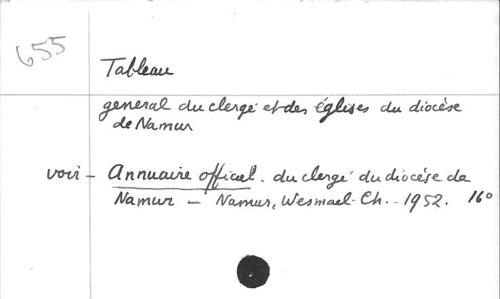 655
Tableau
general du clergé et des églises du diocèse
de Namur
voir - Annuaire officiel. du clergé du diocèse de
Namur - Namur, Wesmael-Ch. - 1952. 16°